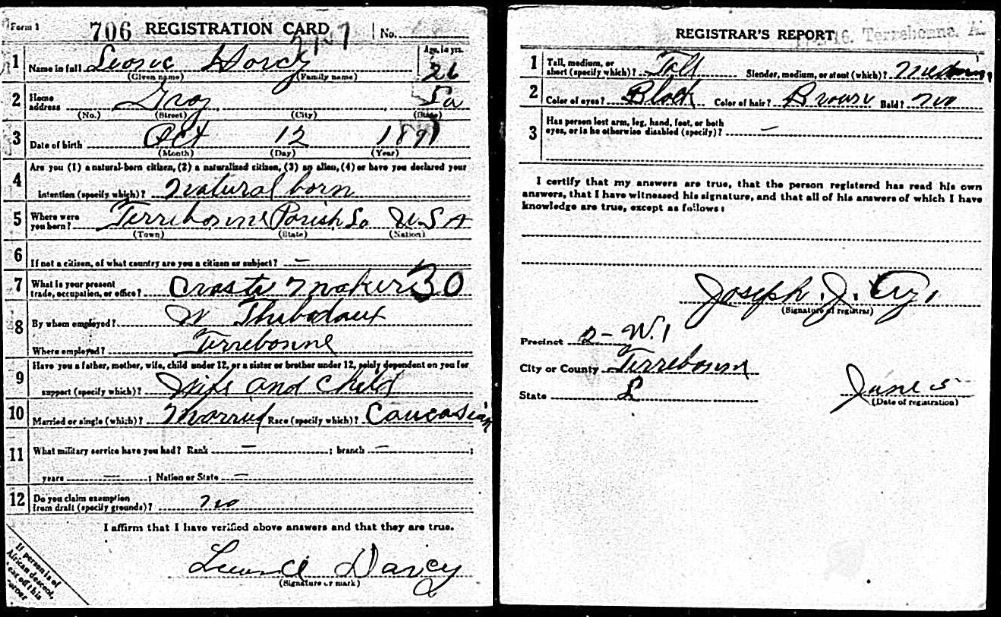 Form 1 706 REGISTRATION CARD 2187 No.
1 Name in full Darcy Age, in yrs. 26
(Given name) (Family name)
2 Home address Gray La
(No.) (Street) (City) (State)
3 Date of birth Oct 12 1891
(Month) (Day) (Year)
Are you (1) a natural-born citizen, (2) a naturalized citizen, (3) an alien, (4) or have you declared your
4 intention (specify which)? Natural born
5 Where were you born? Terrebonne Parish La USA
(Town) (State) (Nation)
6 If not a citizen, of what country are you a citizen or subject? —
7 What is your present trade, occupation, or office? maker 30
8 By whom employed? W Thibodaux
Where employed? Terrebonne
9 Have you a father, mother, wife, child under 12, or a sister or brother under 12, solely dependent on you for
support (specify which)? Wife and Child
10 Married or single (which)? Married Race (specify which)? Caucasian
11 What military service have you had? Rank — ; branch — ;
years — ; Nation or State —
12 Do you claim exemption from draft (specify grounds)? no
I affirm that I have verified above answers and that they are true.
Darcy
(Signature or mark)
If person is of
African descent,
tear off this
corner
REGISTRAR'S REPORT 16. Terrebonne,
1 Tall, medium, or short (specify which)? Tall Slender, medium, or stout (which)? Medium
2 Color of eyes? Black Color of hair? Brown Bald? no
3 Has person lost arm, leg, hand, foot, or both
eyes, or is he otherwise disabled (specify)? —
I certify that my answers are true, that the person registered has read his own
answers, that I have witnessed his signature, and that all of his answers of which I have
knowledge are true, except as follows:
Joseph. J.
(Signature of registrar)
Precinct 2-W.1
City or County Terrebonne
State L
June 5
(Date of registration)